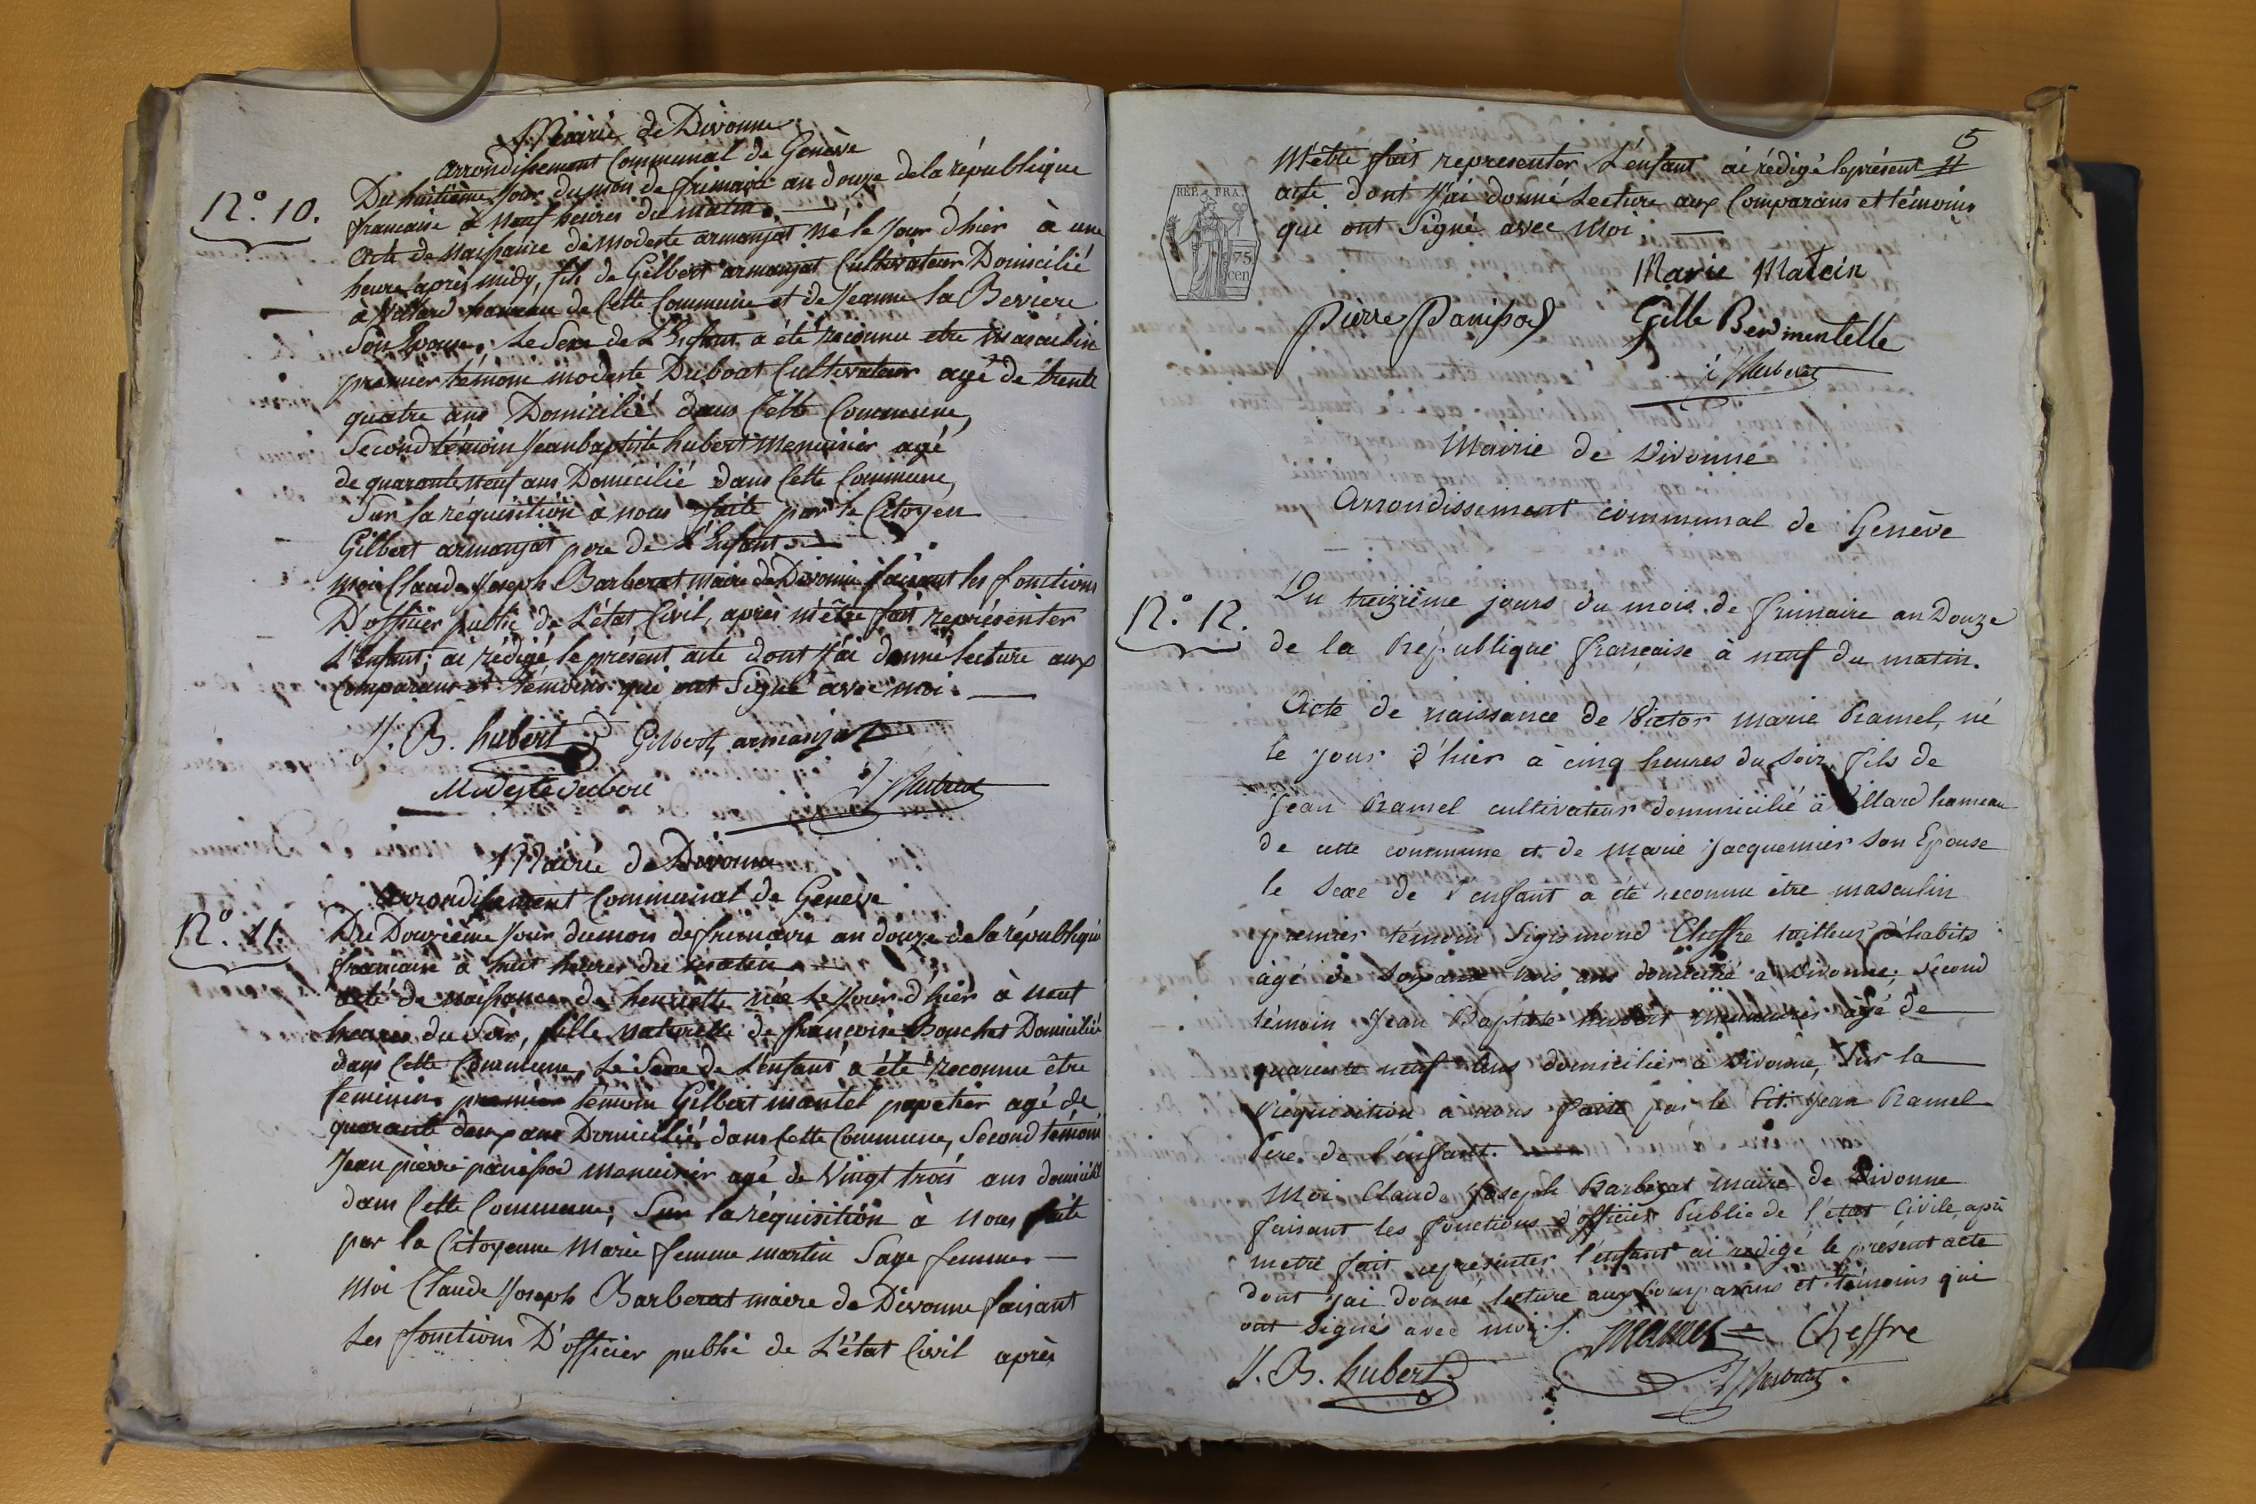 Mairie de Divonne
arrondissement Communal de Genève
N.º 10.
Du huitième Jour du mois de frimaire an douze de la république
francaise à Neuf heures du matin.
Acte de Naissance de Modeste armanjat Né le Jour d'hier à une
heure après midy, fils de Gilbert armanjat Cultivateur Domicilié
à Villard hameau de Cette Commune et de Jeanne la Beviere
Son Epouse. Le Sexe de L'Enfant a été reconnu etre Masculin
premier témoin modeste Duboat Cultivateur agé de trente
quatre ans Domicilié dans Cette Commune,
Second témoin Jean baptiste hubert Menuisier agé
de quarante neuf ans Domicilié dans Cette Commune,
Sur la réquisition à nous faite par le Citoyen
Gilbert armanjat pere de L'Enfant.
Moi Claude Joseph Barberat maire de Divonne faisant les fonctions
D'officier public de L'état Civil, après m'être fait représenter
L'Enfant, ai rédigé le présent acte dont J'ai donné lecture aux
Comparans et témoins qui ont Signé avec moi.
J. B. hubert Gilbert armanjat
Modeste
Mairie de Divonne
arrondissement Communal de Genève
N.º 11.
Du Douzieme Jour du mois de frimaire an douze de la république
francaise à huit heures du matin
acte de naissance de henriette née le Jour d'hier à neuf
heures du Soir, fille Naturelle de francoise Bouchet Domiciliée
dans Cette Commune, Le Sexe de L'enfant a été reconnu être
feminin, premier témoin Gilbert mantel papetier agé de
quarante deux ans Domicilié dans Cette Commune, Second témoin
Jean pierre panissod Menuisier agé de Vingt trois ans domicilié
dans Cette Commune, Sur la réquisition à Nous faite
par la Citoyenne Marie femme martin Sage femme
Moi Claude Joseph Barberat maire de Divonne faisant
Les fonctions D'officier public de L'état Civil après
5
M'être fait representer L'enfant ai rédigé le présent
acte dont J'ai donné Lecture aux Comparans et témoins
que ont Signé avec Moi.
REP. FRA.
75
cen
Marie
Pierre Panissod
Mairie de Divonne
Arrondissement communal de Genève
N.º 12.
Du treizième jours du mois de frimaire an Douze
de la République française à neuf du matin.
Acte de naissance de Victor marie Ramel, né
le jour d'hier à cinq heures du soir, fils de
Jean Ramel cultivateur dommicilié à Villard hameau
de cette commune et de Marie Jacquemier son Epouse
le sexe de l'enfant a été reconnu être masculin
premier témoin Sigismond Cheffre tailleur d'habits
agé de soixante trois ans domicilié a Divonne, second
témoin Jean Baptiste hubert menuisier agé de
quarente neuf ans domicilier à Divonne, Sur la
Requisition à nous faite par le Cit. Jean Ramel
Pere de l'enfant.
Moi Claude Joseph Barberat Maire de Divonne
faisant les fonctions d'officier Public de l'état Civile, après
metre fait representer l'enfant ai redigé le présent acte
dont j'ai donné lecture aux comparans et témoins qui
ont signés avec moi.
Ramel Cheffre
J. B. hubert